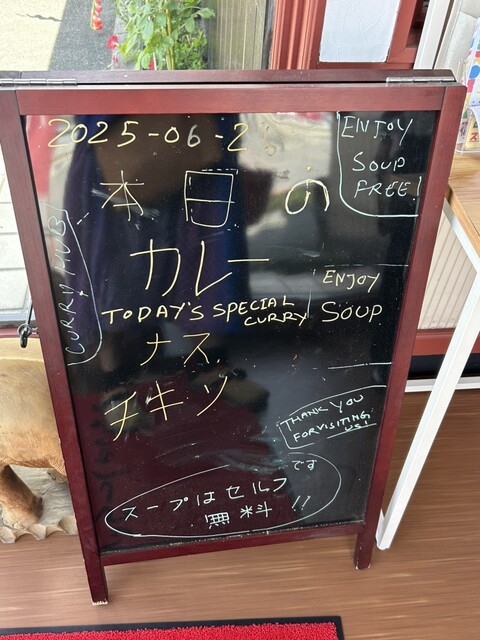 2025-06-2
ENJOY
SOUP
FREE!
本日の
カレー
CURRY HUB
TODAY'S SPECIAL
CURRY
ENJOY
SOUP
ナス
チキン
THANK YOU
FOR VISITING
US!
スープはセルフ
です
無料!!